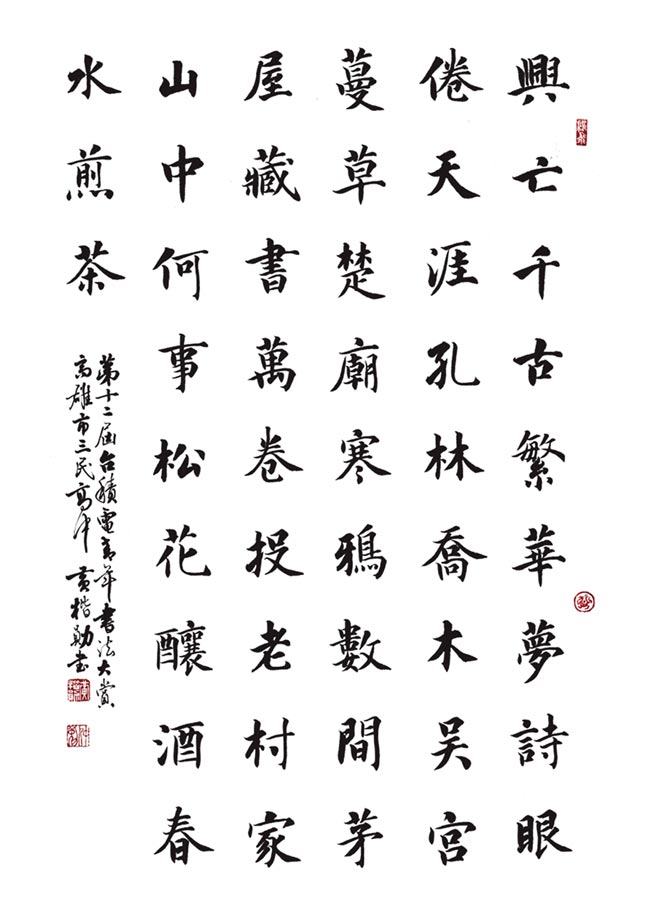 興亡千古繁華夢詩眼
倦天涯孔林喬木吳宮
蔓草楚廟寒鴉數間茅
屋藏書萬卷投老村家
山中何事松花釀酒春
水煎茶
第十二屆台積電青年書法大賞
高雄市三民高中 黃楷勛書